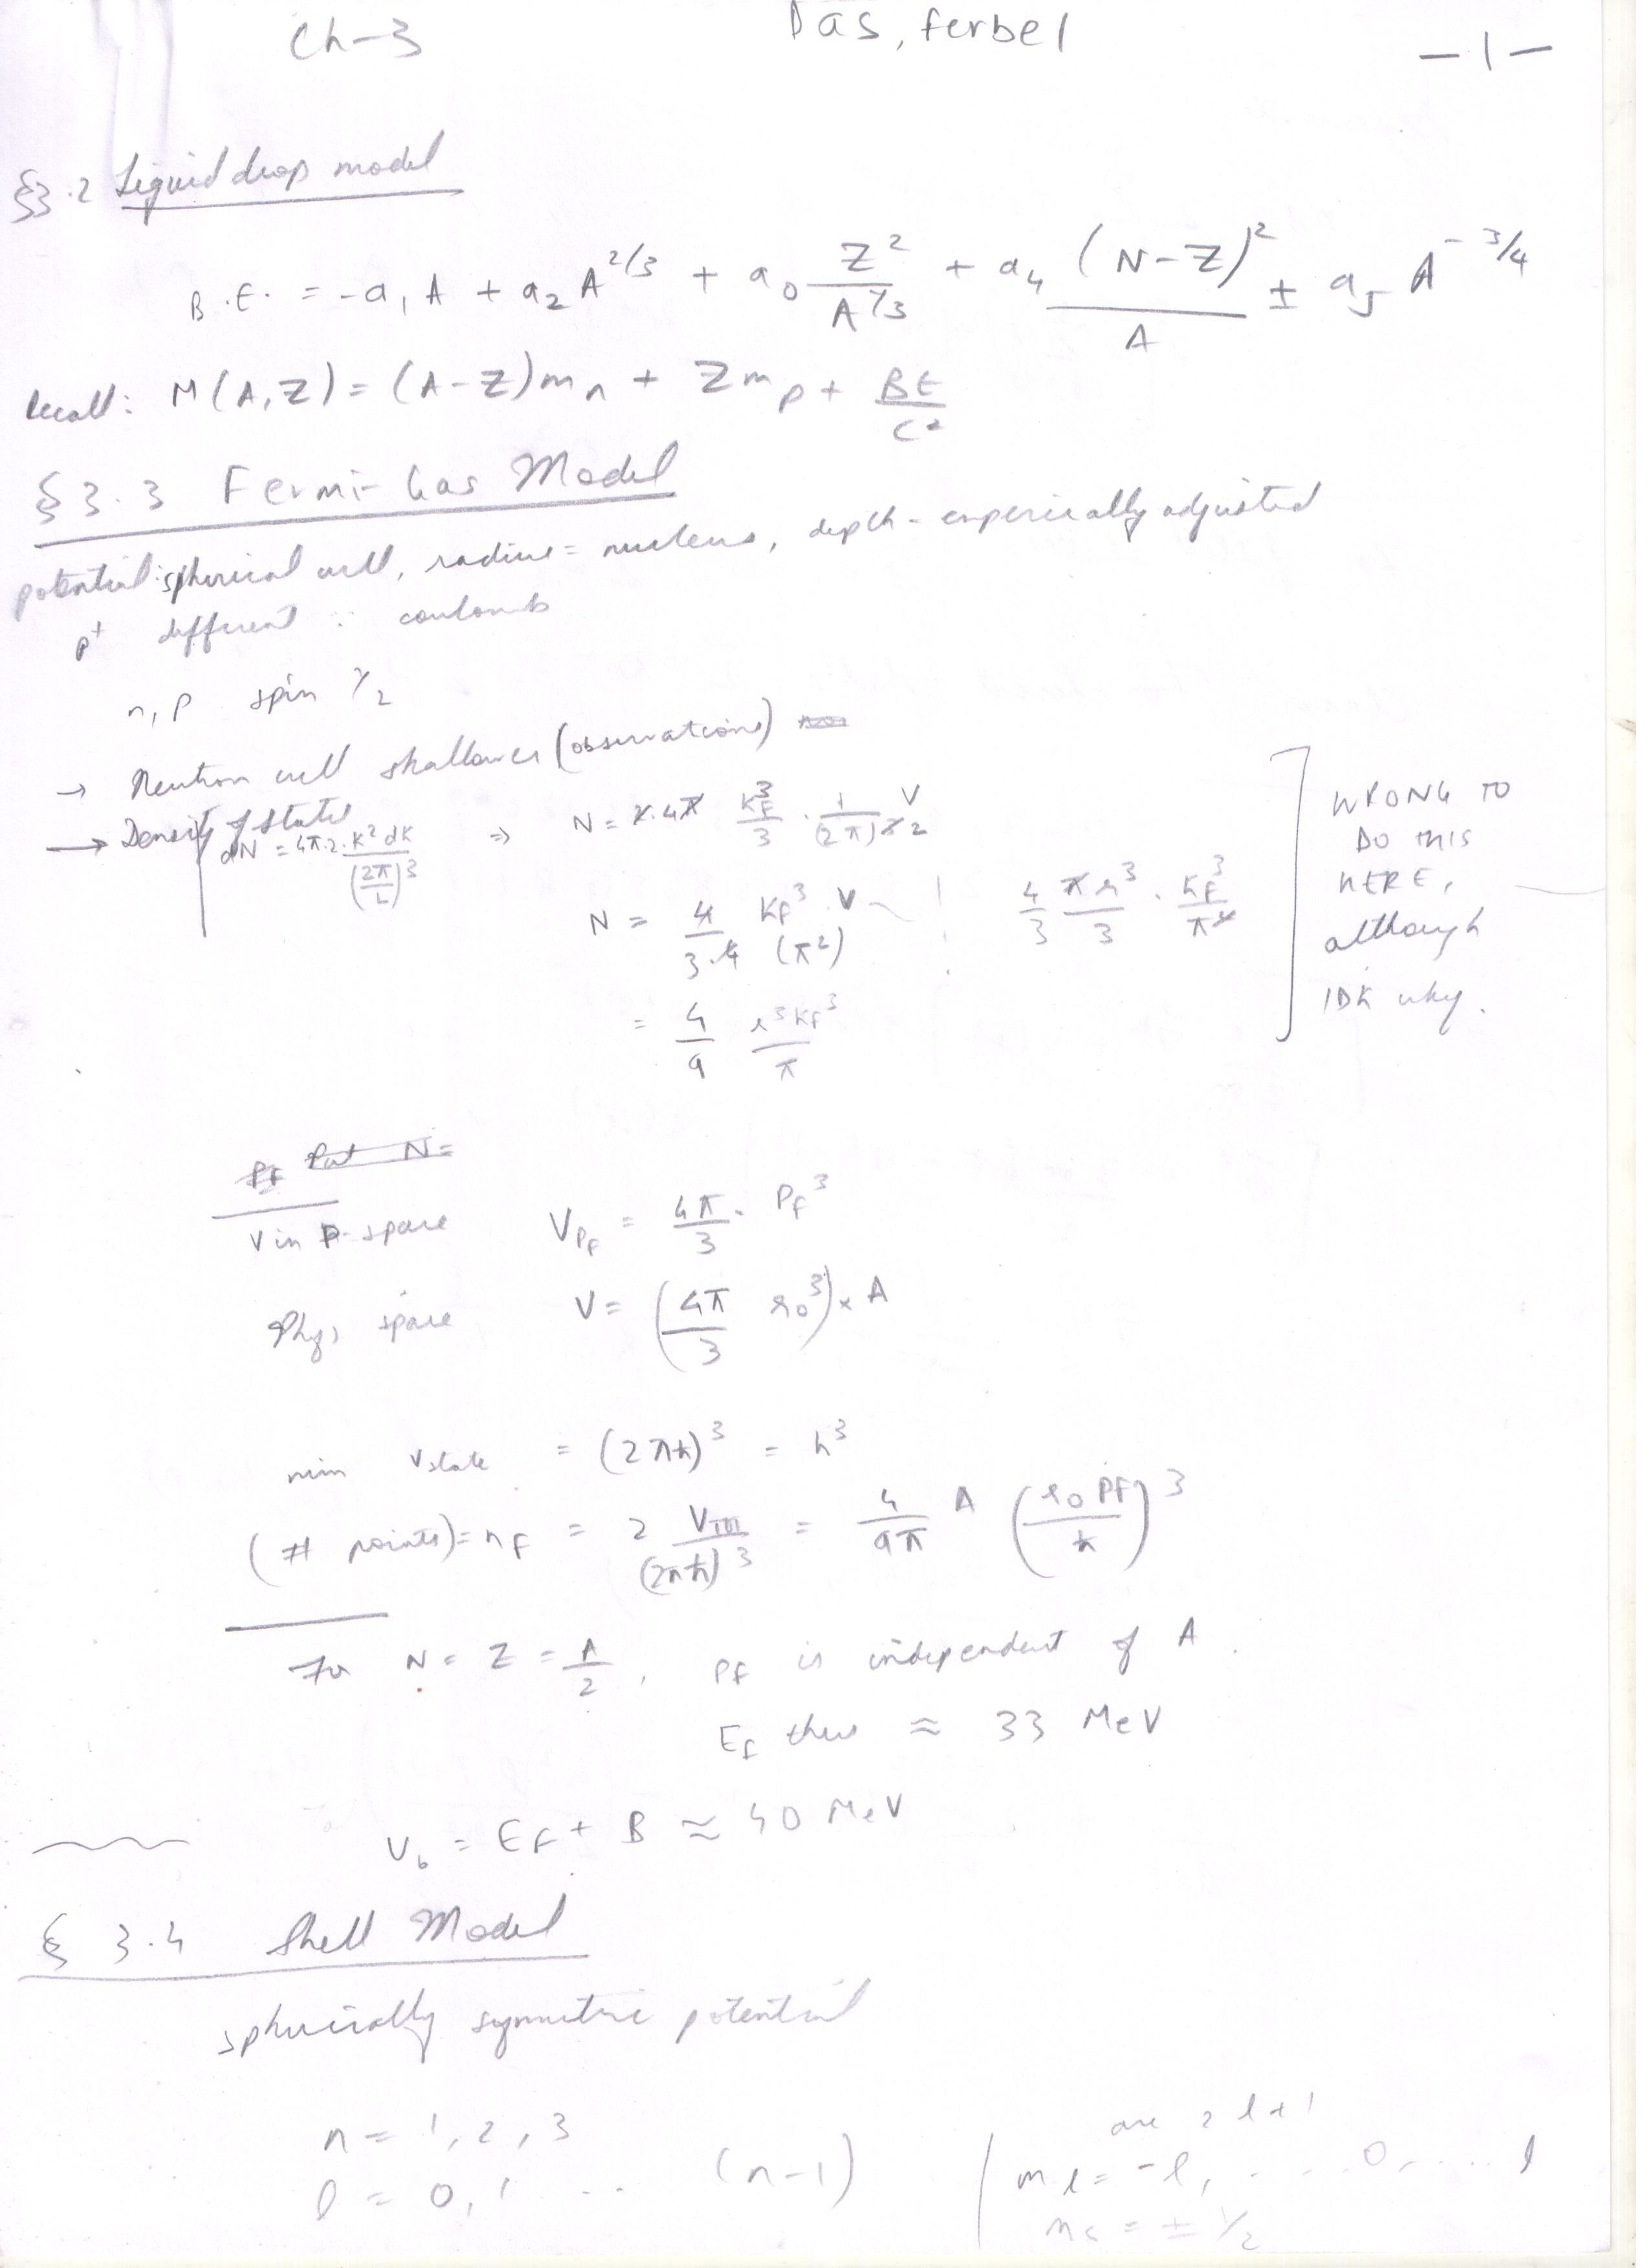 Ch-3
Das, ferbel
-1-
§3.2 Liquid drop model
B.E. = -a₁ A + a₂ A^{2/3} + a₀ Z²/A^{1/3} + a₄ (N-Z)²/A ± a₅ A^{-3/4}
Recall: M(A,Z) = (A-Z)mₙ + Zm_p + BE/C²
§3.3 Fermi-Gas Model
potential: spherical well, radius = nucleus, depth - emperically adjusted
p⁺ different ∵ coulomb
n, p spin 1/2
→ Neutron well shallower (observations)
→ Density of states
dN = 4π.2.K²dK/(2π/L)³ ⇒ N = 2.4π K_F³/3 . 1/(2π)³2 V
N = 4/(3.4) K_F³.V/(π²) ! 4/3 πr³/3 . K_F³/π²
= 4/9 r³K_F³/π
WRONG TO
DO THIS
HERE,
although
IDK why.
Pf Put N=
V in P-space V_{Pf} = 4π/3 . P_f³
Phys space V = (4π/3 r₀³) × A
min Vstate = (2πħ)³ = h³
(# points) = n_F = 2 V_{TOT}/(2πħ)³ = 4/9π A (r₀ P_F/ħ)³
For N = Z = A/2, P_F is independent of A.
E_F thus ≈ 33 MeV
V₀ = E_F + B ≈ 40 MeV
§ 3.4 Shell Model
spherically symmetric potential
n = 1, 2, 3
are 2l+1
l = 0, 1 ... (n-1)
m_l = -l, ... 0, ... l
m_s = ± 1/2